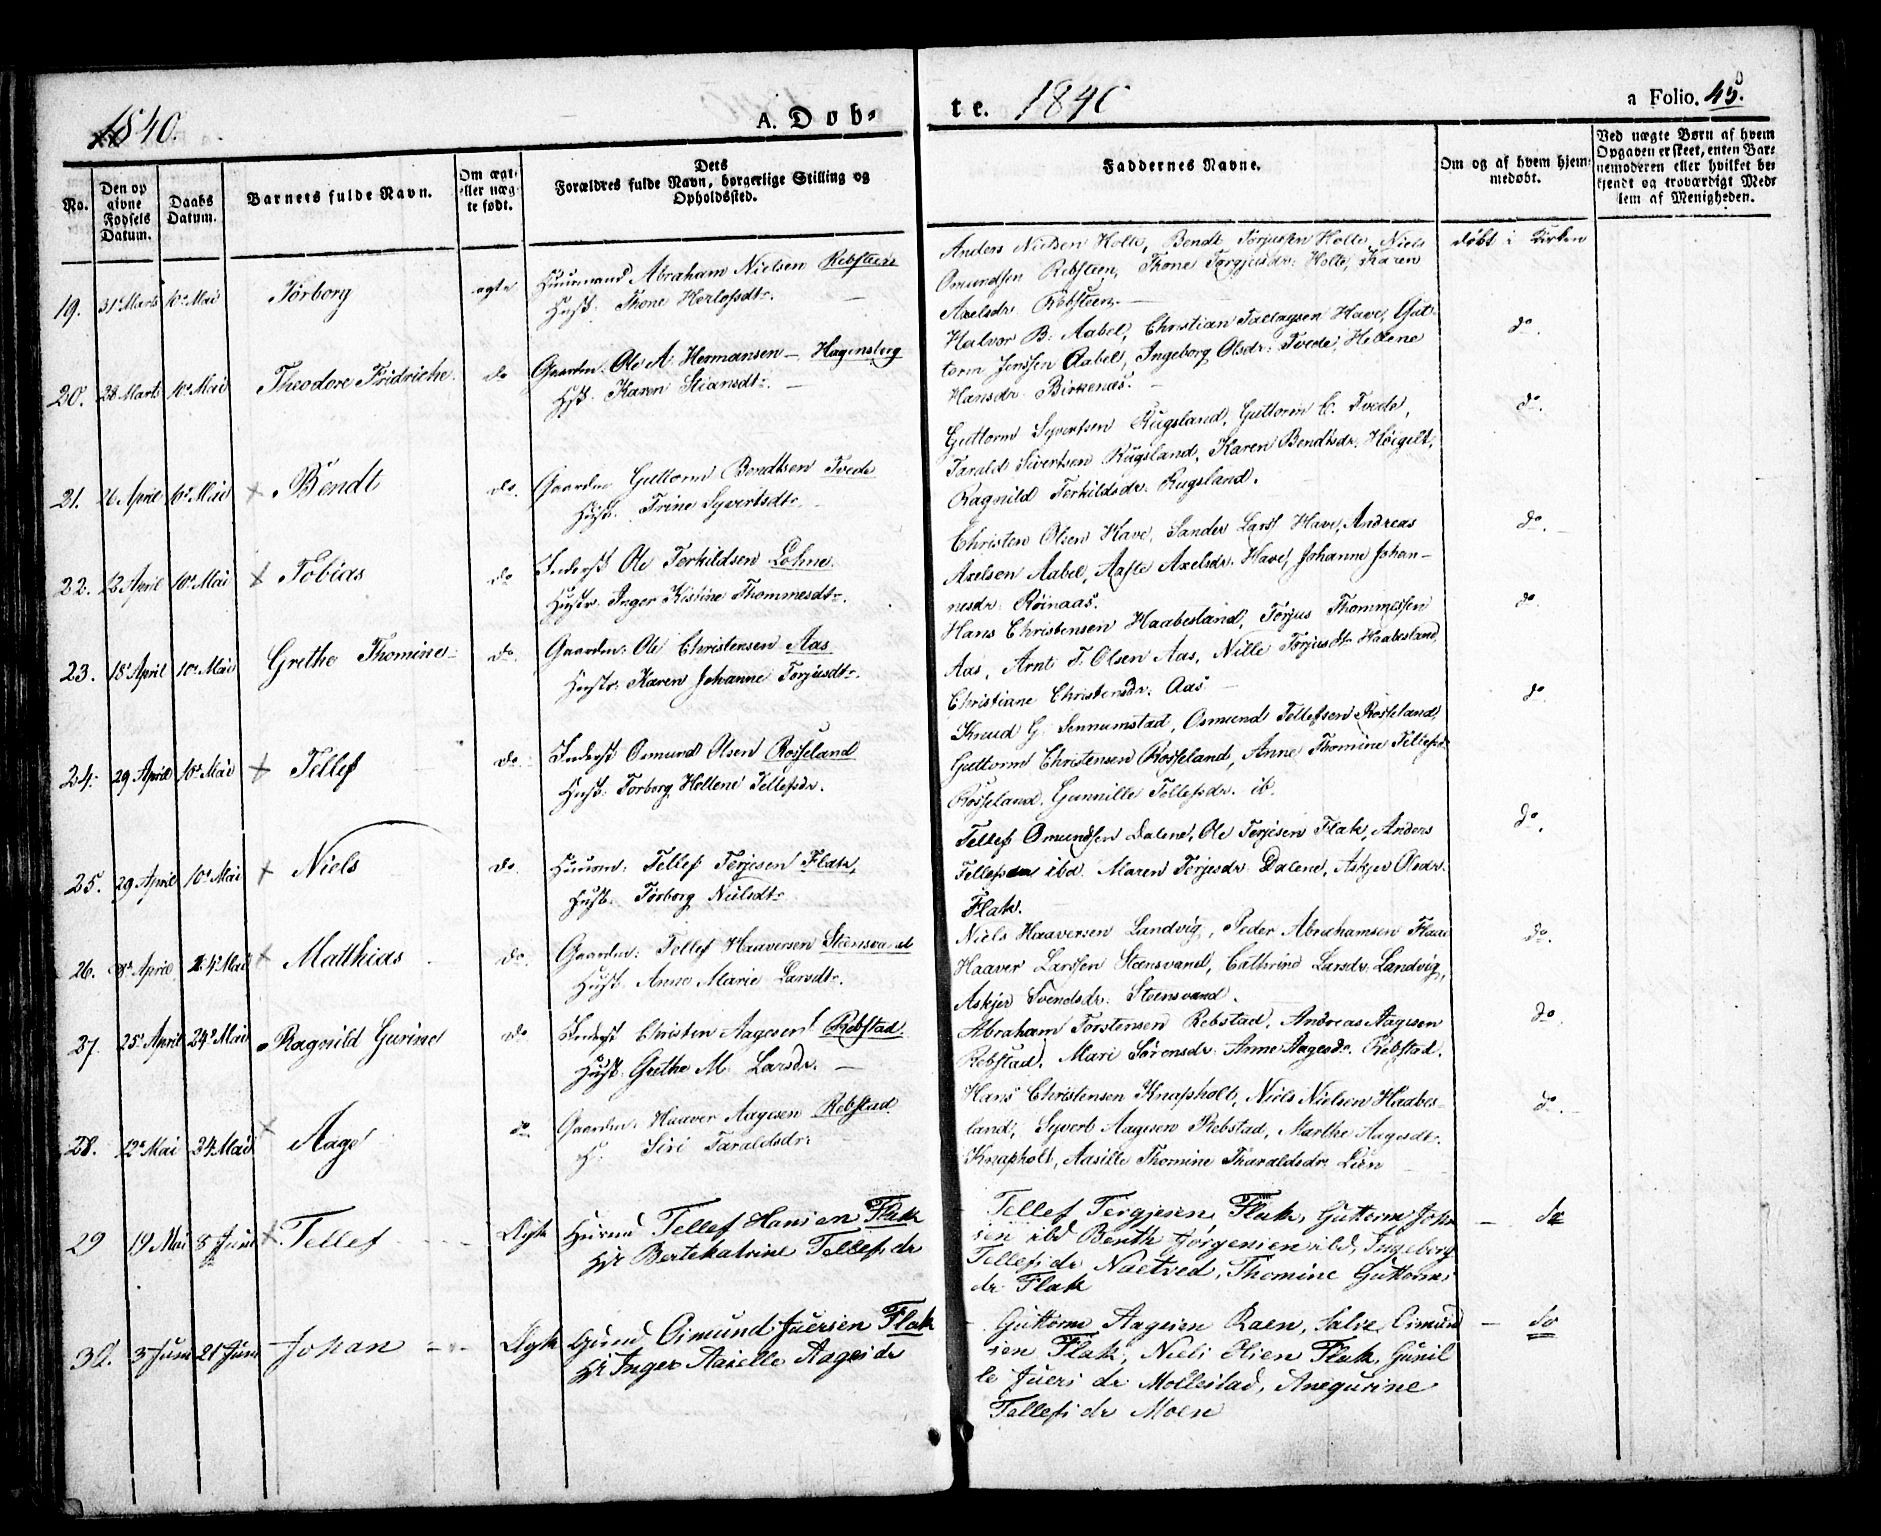 1840.
A. Døb-
te. 1840
a Folio. 45.
No.
Den opgivne Fødsels Datum.
Daabs Datum.
Barnets fulde Navn.
Om ægte eller nægte født.
Dets
Forældres fulde Navn, borgerlige Stilling og
Opholdssted.
Faddernes Navne.
Om og af hvem hjemmedøbt.
Ved nægte Børn af hvem
Opgaven er skeet, enten Barnemoderen eller hvilket bekjendt og troværdigt Medlem af Menigheden.
19. 31 Marts 10 Mai Tørborg ægte Huusmand Abraham Nielsen Rebsteen
Hust. Thone Herlofsdtr.
Anders Nielsen Holte, Bendt Torjussen Holte, Niels
Omundsen Rebsteen, Thone Torgjusdr. Holte, Karen
Axelsdr. Rebsteen.
døbt i Kirken
20. 28 Marts 10 Mai Theodore Fridriche do Gaardm. Ole A. Hermansen - Hagensborg
Hst. Karen Stiansdtr.
Halvor B. Aabel, Christian Tallaysen Have, Gut-
torm Jenssen Aabel, Ingeborg Olsdr. Tvede, Hellene
Hansdr. Birkenæs.
do.
21. 26 April 10 Mai Bendt do. Gaardm. Guttorm Bendtsen Tvede
Hust. Trine Syvertsdtr.
Guttorm Syvertsen Rugsland, Guttorm C. Tvede,
Tarald Sivertsen Rugsland, Karen Bendtsdr. Høigelt,
Ragnild Terkildsdr. Rugsland.
do.
22. 12 April 10 Mai Tobias do Inderst Ole Terkildsen Lohne
Hustr. Inger Kistine Thommesdtr.
Christen Olsen Have, Sander Lars. Have, Andreas
Axelsen Aabel, Aaste Axelsdr. Have, Johanne Johan-
nesdr. Røinaas.
do.
23. 18 April 10 Mai Grethe Thomine do. Gaardm. Ole Christensen Aas
Hustr. Karen Johanne Torjusdtr.
Hans Christensen Haabesland, Torjus Thommessen
Aas, Arnt T. Olsen Aas, Nille Torjusdtr. Haabesland,
Christiane Christensdr. Aas
do.
24. 29 April 10 Mai Tellef do. Inderst Osmund Olsen Rosseland
Hust. Torborg Hellene Tellefsdr.
Knud G. Sennumstad, Osmund Tellefsen Rosseland,
Guttorm Christensen Rosseland, Anne Thomine Tellefsd.
Rosseland. Gunnille Tellefsdr. ib.
do.
25. 29 April 10 Mai Niels do. Huusm. Tellef Terjesen Flak,
Hust. Torborg Nielsdtr.
Tellef Omundsen Dalene, Ole Terjesen Flak, Anders
Tellefsen ibd. Maren Terjesdr. Dalene, Askjer Olsdr.
Flak.
do.
26. 8 April 24 Mai Matthias do. Gaardm. Tellef Haaversen Steensvand
Hust. Anne Marie Larsdtr.
Niels Haaversen Landvig, Peder Abrahamsen Flaa
Haaver Larssen Steensvand, Cathrine Larsdr. Landvig,
Askjer Svendsdr. Steensvand.
do.
27. 25 April 24 Mai Ragnild Gurine do. Inderst Christen Aagesen Rebstad.
Hust. Grethe M. Larsdr.
Abraham Torstensen Rebstad, Andreas Aagesen
Rebstad, Mari Sørensdr. Anne Aagesdr. Rebstad.
do.
28. 12 Mai 24 Mai Aage do. Gaardm. Haaver Aagesen Rebstad
H. Siri Taraldsdr.
Hans Christensen Knapholt, Niels Nielsen Haabes-
land, Syvert Aagesen Rebstad, Marthe Aagesdt.
Knapholt, Aasille Thomine Tharaldsdr. Lien
do.
29 19 Mai 8 Juni Tellef Ægte Husmd Tellef Hansen Flak
Hst Bertekatrine Tellefsdr
Tellef Tergjesen Flak, Guttorm John
sen ibd Benth Jørgensen ibd, Ingeborg
Tellefsdr Naetved, Thomine Guttorms
dr Flak
do
30. 3 Juni 21 Juni Johan Ægte Grmd Osmund Juersen Flak
Hst Inger Aaselle Aagesdr
Guttorm Aagesen Raen, Salve Osmund
sen Flak, Niels Olsen Flak, Gunil
le Juers dr Mollestad, Anegurine
Tellefsdr Moen
do